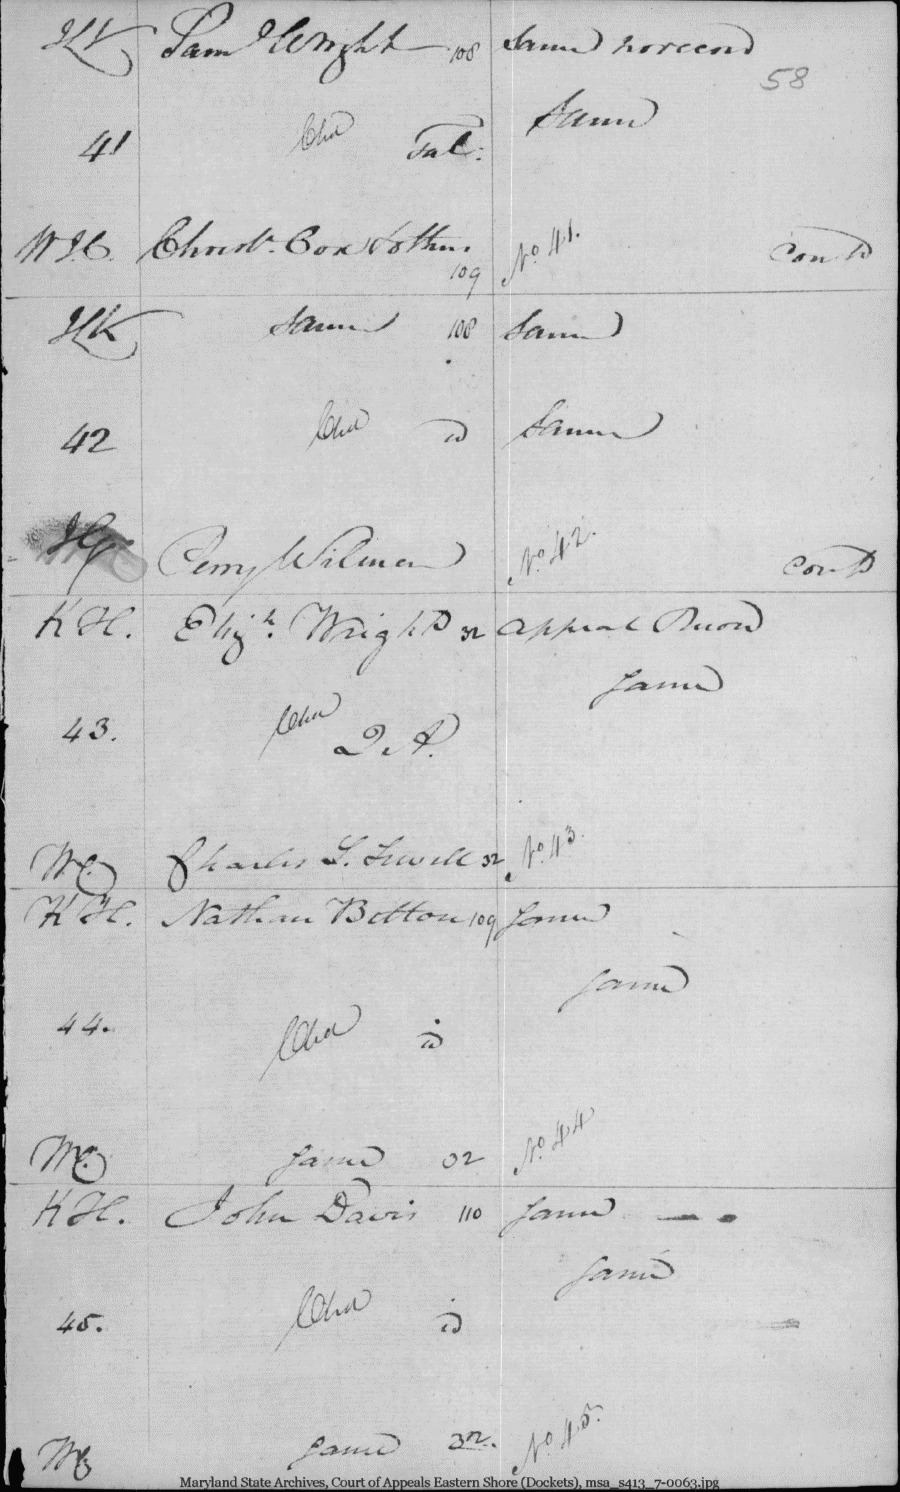 Sam Wright 108 Same no record
58
Same
41 Tal:
Christ. Cox & others No 41. Cont'd
109
HK Same 108 Same
42 id Same
Perry Wilmer No 42. Cont'd
K H. Eliz.h Wright 32 Appeal Record
Same
43. Q. A.
Charles S. Sewell 32 No. 43.
K H. Nathan Botton 109 Same
Same
44. id
Same 32 No 44
K H. John Davis 110 Same
Same
45. id
Same 32. No 45.
Maryland State Archives, Court of Appeals Eastern Shore (Dockets), msa_s413_7-0063.jpg